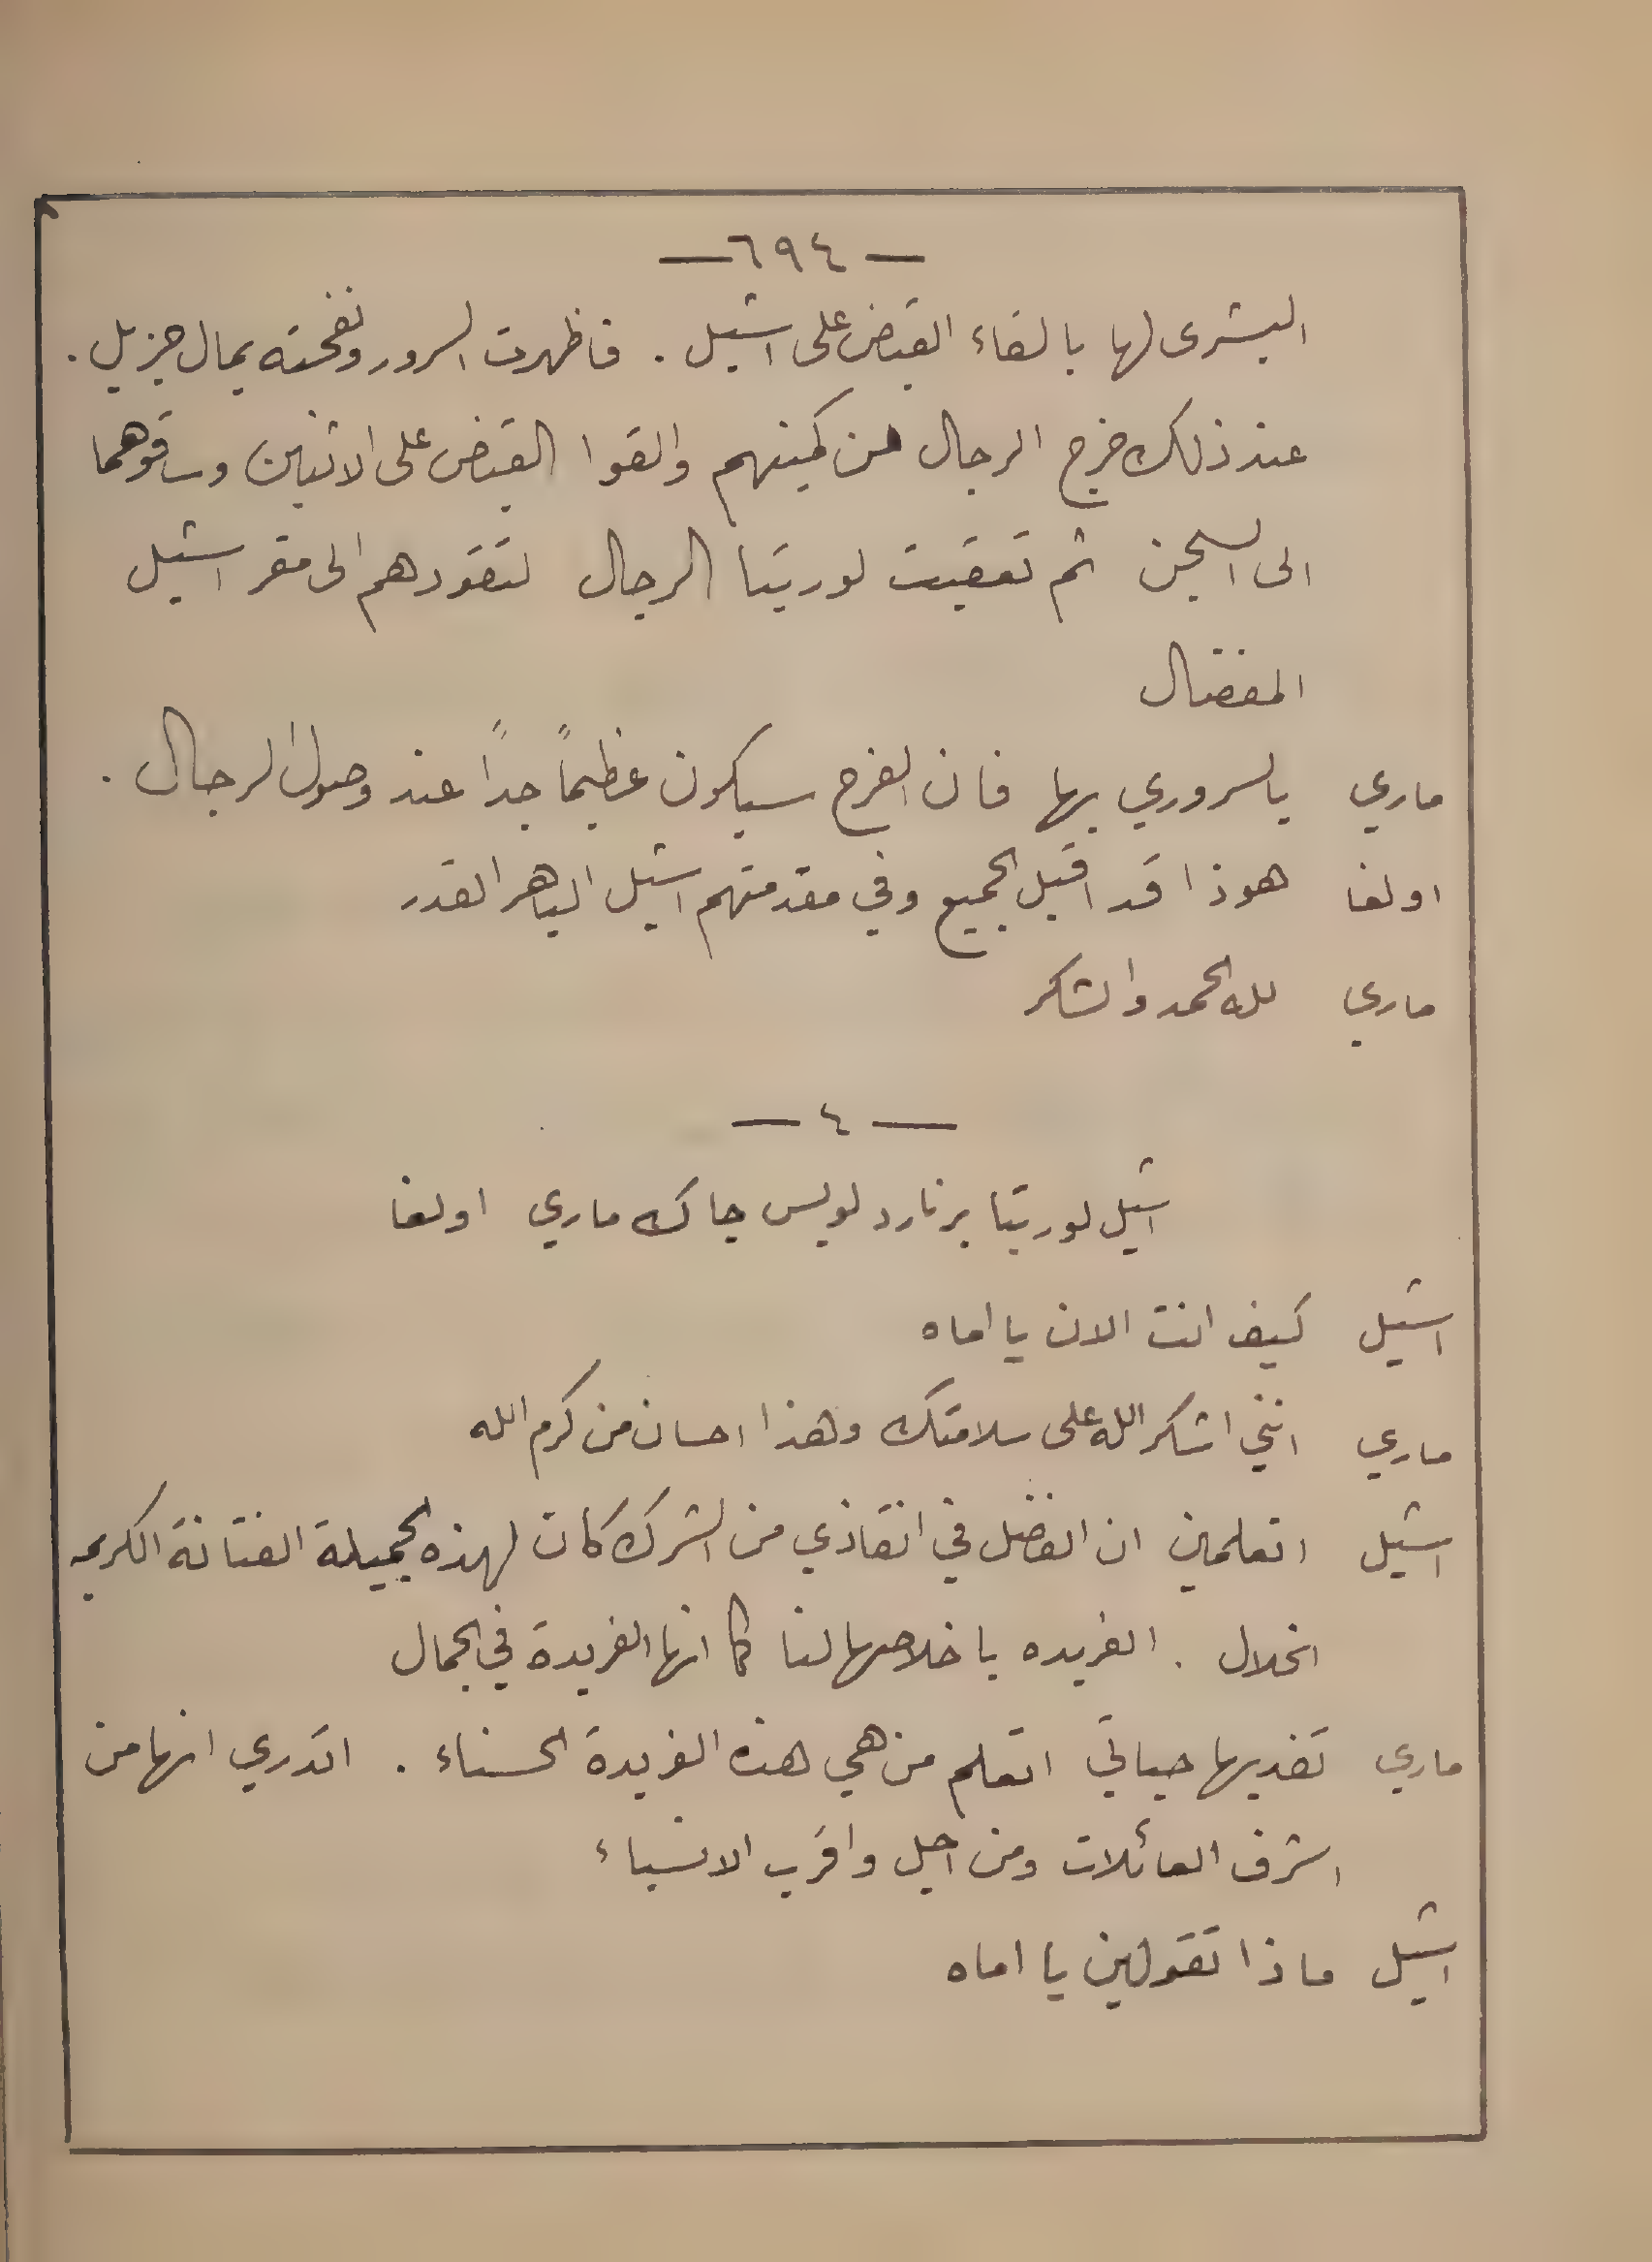 — ٦٩٤ —
البشرى لها بالقاء القبض على اشيل . فاظهرت السرور ونفحته بمال جزيل .
عند ذلك خرج الرجال من كمينهم والقوا القبض على الاثنين وساقوهما
الى السجن ثم تعقبت لوريتا الرجال لتقودهم الى مقر اشيل
المفضال
ماري يالسروري بها فان الفرح سيكون عظيماً جداً عند وصول الرجال .
اولغا هوذا قد اقبل الجميع وفي مقدمتهم اشيل الباهر القدر
ماري لله الحمد والشكر
— ٤ —
اشيل لوريتا برنارد لويس جاك ماري اولغا
اشيل كيف انت الان يا اماه
ماري انني اشكر الله على سلامتك وهذا احسان من كرم الله
اشيل اتعلمين ان الفضل في انقاذي من الشرك كان لهذه الجميلة الفتانة الكريمه
الخلال . الفريده باخلاصها لنا كما انها الفريدة في الجمال
ماري تفديها حياتي اتعلم من هي هذه الفريدة الحسناء . اتدري انها من
اشرف العائلات ومن اجل واقرب الانسباء
اشيل ماذا تقولين يا اماه